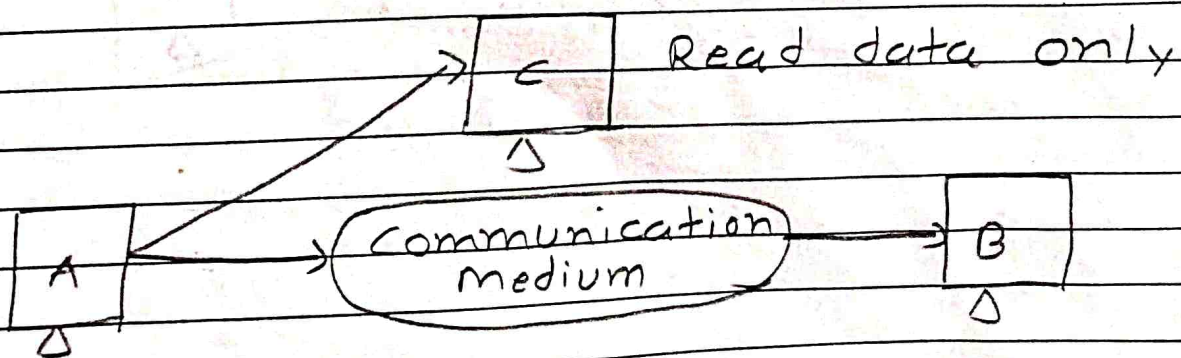 C Read data only
A Communication B
Medium